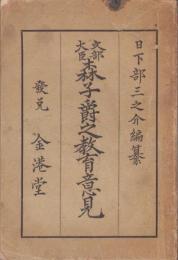 日下部三之介編纂
文部大臣
森子爵之教育意見
發兌 金港堂